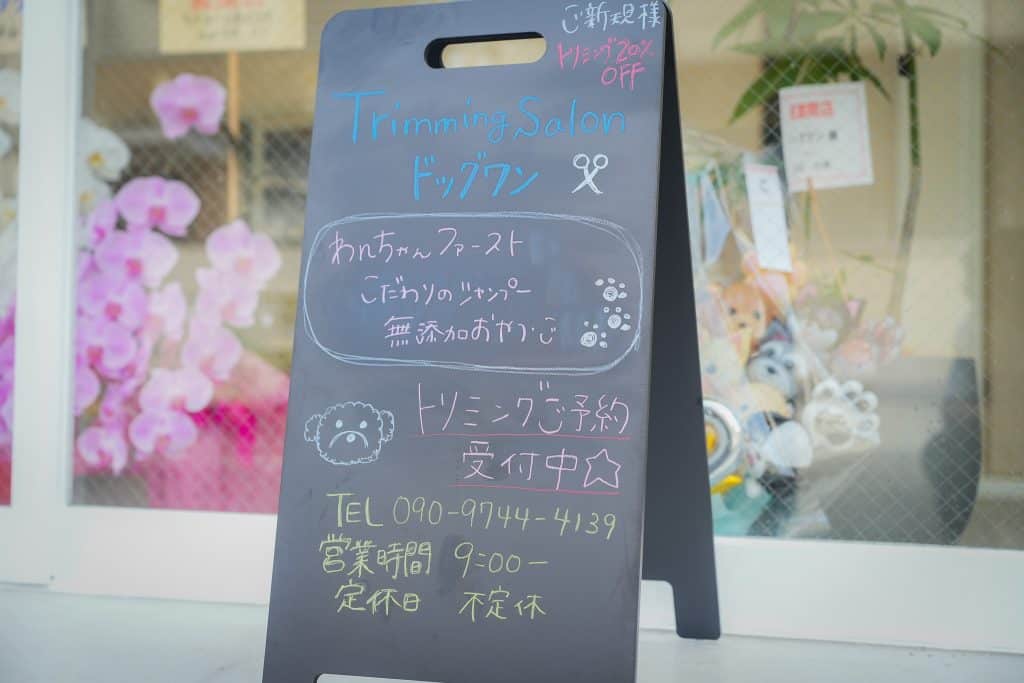 ご新規様
トリミング20%
OFF
Trimming Salon
ドッグワン
わんちゃんファースト
こだわりのシャンプー
無添加おやつ
トリミングご予約
受付中☆
TEL 090-9744-4139
営業時間 9:00-
定休日 不定休